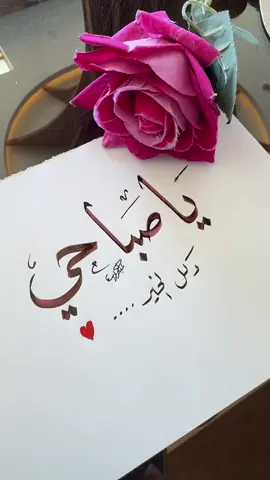 يا صباحي
وكل الخير ....